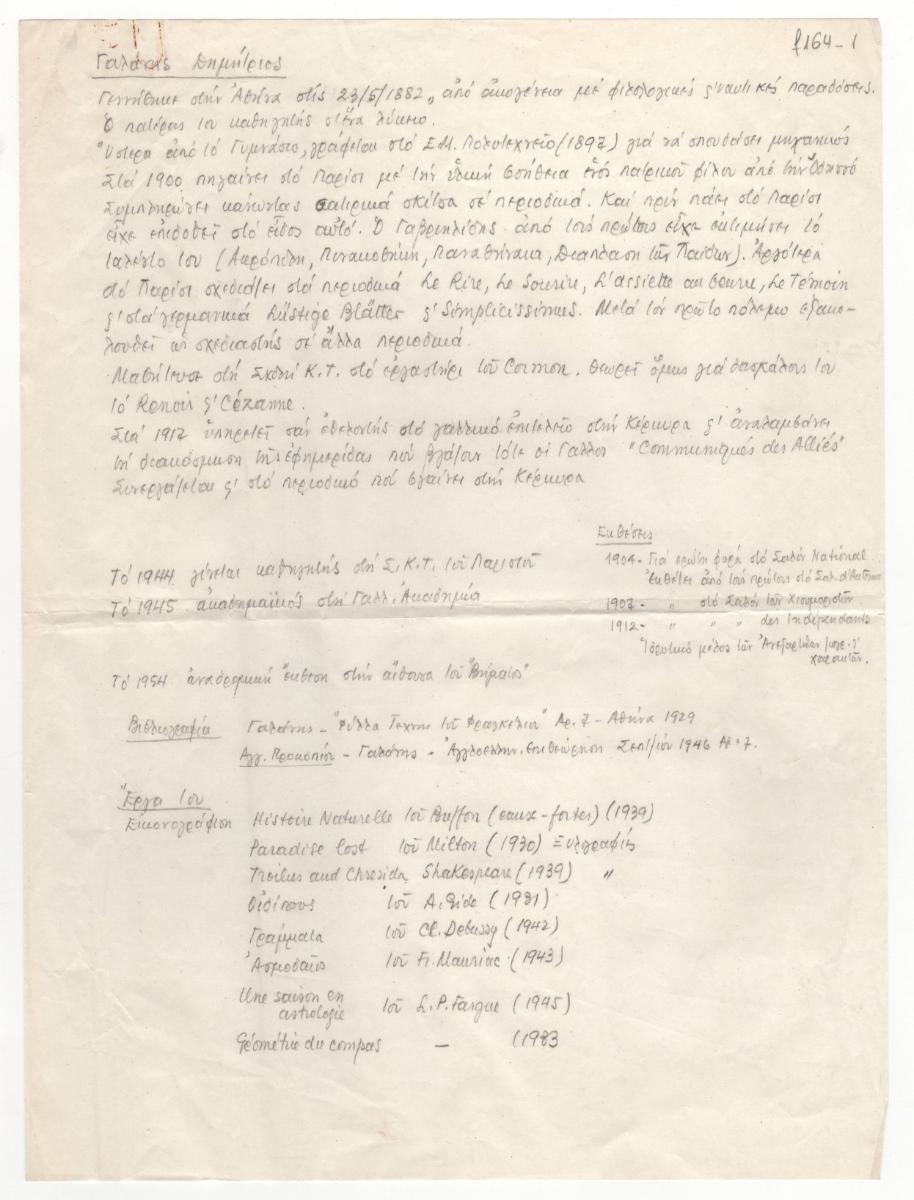 f164-1
Γαλάνης Δημήτριος
Γεννήθηκε στήν Ἀθήνα στίς 23/5/1882, ἀπό οἰκογένεια μέ φιλολογικές ς' ναυτικές παραδόσεις.
Ὁ πατέρας του καθηγητής σ' ἕνα λύκειο.
Ὕστερα ἀπό τό Γυμνάσιο, γράφεται στό Ε.Μ. Πολυτεχνεῖο (1897) γιά νά σπουδάσει μηχανικός
Στά 1900 πηγαίνει στό Παρίσι μέ τήν ὑλική βοήθεια ἑνός πατρικοῦ φίλου ἀπό τήν Ὀδησσό
Συμπληρώνει κάνωντας σατιρικά σκίτσα σέ περιοδικά. Καί πρίν πάει στό Παρίσι
εἶχε ἐπιδοθεῖ στό εἶδος αὐτό. Ὁ Γαβριηλίδης ἀπό τούς πρώτους εἶχε ἐκτιμήσει τό
ταλέντο του (Ἀκρόπολη, Πινακοθήκη, Παναθήναια, Διάπλαση τῶν Παίδων). Ἀργότερα
στό Παρίσι σχεδιάζει στά περιοδικά Le Rire, Le Sourire, L'assiette au beurre, Le Témoin
ς' στά γερμανικά Lüstige Blätter ς' Simplicissimus. Μετά τόν πρῶτο πόλεμο ἐξακο-
λουθεῖ ὡς σχεδιαστής σέ ἄλλα περιοδικά.
Μαθήτευσε στή Σχολή Κ.Τ. στό ἐργαστήρι τοῦ Cormon. Θεωρεῖ ὅμως γιά δασκάλους του
τό Renoir ς' Cézanne.
Στά 1917 ὑπηρετεῖ σάν ἐθελοντής στό γαλλικό ἐπιτελεῖο στήν Κέρκυρα ς' ἀναλαμβάνει
τή διακόσμηση τῆς ἐφημερίδας πού βγάζουν τότε οἱ Γάλλοι "Communiqués des Alliés"
Συνεργάζεται ς' στό περιοδικό πού βγαίνει στήν Κέρκυρα
Ἐκθέσεις
1904 - Γιά πρώτη φορά στό Σαλόν National
Ἐκθέτει ἀπό τούς πρώτους στό Σαλ. d'Automne
1907 - " στό Σαλόν τῶν Χιουμοριστῶν
1912 - " " " des Independants
Ἱδρυτικό μέλος τῶν Ἀνεξαρτήτων
χαρακτῶν.
Τό 1944 γίνεται καθηγητής στή Σ.Κ.Τ. τοῦ Παρισιοῦ
Τό 1945 ἀκαδημαϊκός στή Γαλλ. Ἀκαδημία
Τό 1954 ἀναδρομική ἔκθεση στήν αἴθουσα τοῦ "Βήματος"
Βιβλιογραφία Γαλάνης - "Φύλλα Τέχνης τοῦ Φραγκέλιου" Ἀρ. 7 - Ἀθήνα 1929
Ἀγγ. Προκοπίου - Γαλάνης - Ἀγγλοελλην. ἐπιθεώρηση Σεπτ/ίου 1946 Ἀρ. 7.
Ἔργα του
Εἰκονογράφιση Histoire Naturelle τοῦ Buffon (eaux-fortes) (1939)
Paradise lost τοῦ Milton (1930) Ξυλογραφίες
Troilus and Chresida Shakespeare (1939) "
Οἰδίπους τοῦ A. Gide (1931)
Γράμματα τοῦ Cl. Debussy (1942)
Ἀσμοδαῖος τοῦ Fr. Mauriac (1943)
Une saison en
astrologie τοῦ L.P. Fargue (1945)
Géométrie du compas - (1983